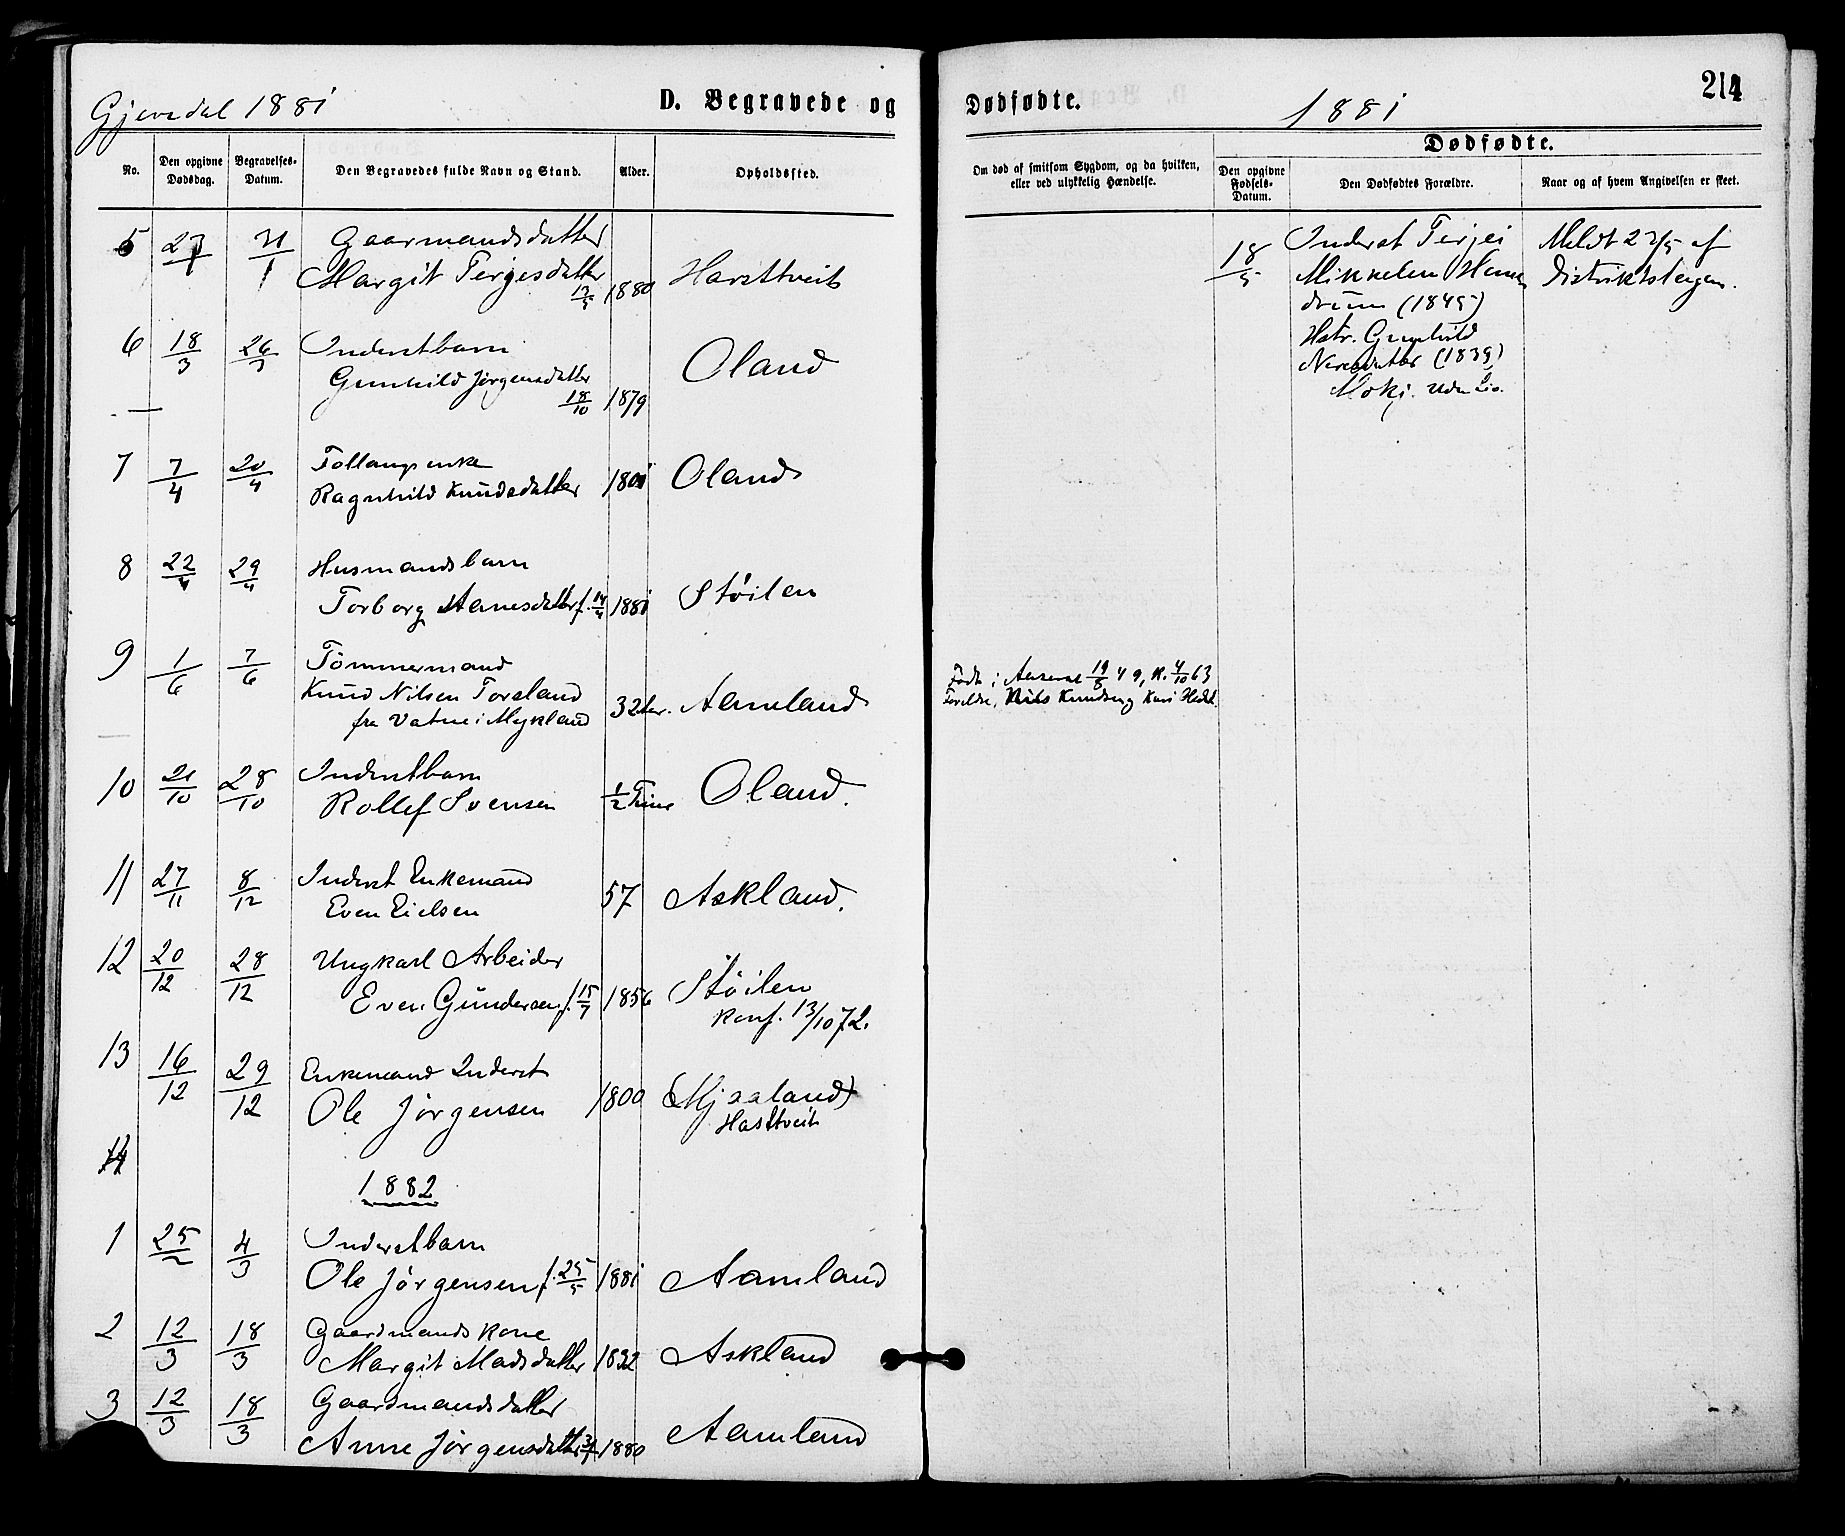 Gjøvdal 1881
D. Begravede og
Dødfødte.
1881
214
No.
Den opgivne Dødsdag.
Begravelses-Datum.
Den Begravedes fulde Navn og Stand.
Alder.
Opholdssted.
Om død af smitsom Sygdom, og da hvilken, eller ved ulykkelig Hændelse.
Dødfødte.
Den opgivne Fødsels-Datum.
Den Dødfødtes Forældre.
Naar og af hvem Angivelsen er skeet.
5 27/1 31/1 Gaarmandsdatter
Margit Terjesdatter 1880
6 18/3 26/3 Inderstbarn
Gunhild Jørgensdatter
18/10 1879 Oland
7 7/4 20/4
Ragnhild Knudsdatter 1801 Oland
8 22/4 29/4 Husmandsbarn
Torborg Hansdatter f. 14/4 1881 Støilen
9 1/6 7/6 Tømmermand
Knud Nilsen Toreland
fra Vatne i Mykland 32 Aar. Aamland
10 21/10 28/10 Inderstbarn
Rollef Svensen 1/2 Time Oland.
11 27/11 8/12 Inderst Enkemand
Even Eielsen 57 Askland.
12 20/12 28/12 Ungkarl Arbeider
Even Gundersen f. 15/7 1856 Støilen
Konf. 13/10 72.
13 16/12 29/12 Enkemand Inderst
Ole Jørgensen 1800 (Mjaaland)
14
1882
1 25/2 4/3 Inderstbarn
Ole Jørgensen f. 25/5 1881 Aamland
2 12/3 18/3 Gaardmandskone
Margit Madsdatter 1832 Askland
3 12/3 18/3 Gaardmandsdatter
Anne Jørgensdatter 1880 Aamland
Født i 19/8 49, K. 4/10 63
Foreldre, Nils Knudsen og Kari
18/5 Inderst Terjei
Mikkelsen
(1845)
Hstr. Gunhild
(1839)
Meldt 23/5 af
Distriktslægen.